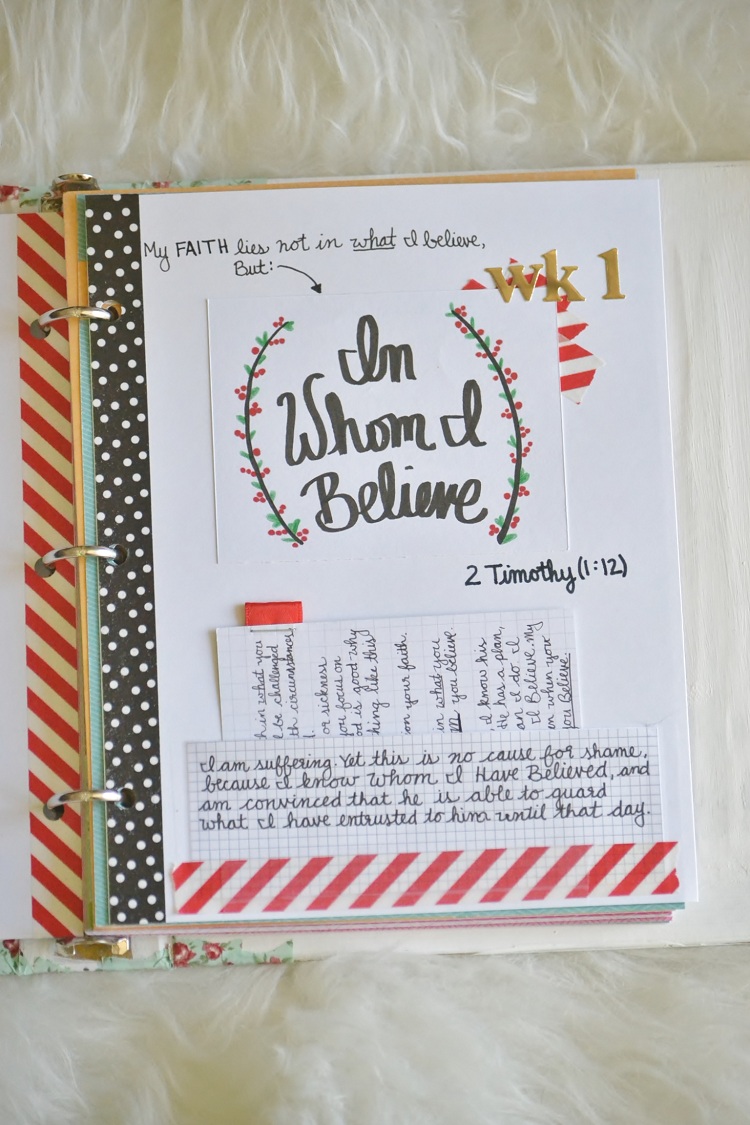 My FAITH lies not in what I believe,
But:
wk 1
In
Whom I
Believe
2 Timothy (1:12)
h in what you
be challenged
th circumstances,
or sickness
you focus on
od is good why
king like this
on your faith.
in what you
you believe.
I know his
He has a plan,
an I do. I
I Believe. My
en when your
you Believe.
I am suffering. Yet this is no cause for shame,
because I know Whom I Have Believed, and
am convinced that he is able to guard
what I have entrusted to him until that day.